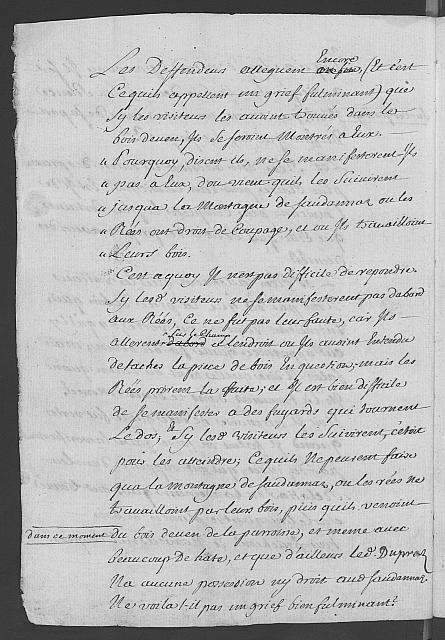 Encore
Les Deffendeurs alleguent (Et c'est
Ce quils appellent un grief fulminant) que
Sy les visiteurs les avoint trouvés dans le
bois deven, Ils se seroint Montrés à Eux.
« Pourquoy, disent ils, ne se manifesterent-Ils
« pas a Eux, dou vient quils les Suivirent
« jusqua la Montagne de Saudannaz ou les
« Rées ont droit de Coupage, et ou Ils travailloint
« Leurs bois.
C'est a quoy Il n'est pas difficile de repondre.
Sy les d. visiteurs ne se manifesterent pas dabord
aux Rées, Ce ne fut pas leur faute, car Ils
Sur le Champ
allerent dabord a l'endroit ou Ils avoint Entendu
detacher la piece de bois En question; mais les
Rées prirent la fuite; et Il est bien difficile
de se manifester a des fuyards qui tournent
Le dos; Et Sy les d. visiteurs les Suivirent, c'etoit
pour les atteindre; Ce quils ne peurent faire
qua la Montagne de Saudannaz, ou les rées ne
travailloint pas leurs bois, puis quils venoint
dans ce moment
du bois deven de la parroisse, et meme avec
beaucoup de hate, et que d'ailleurs le d. Dupraz
N'a aucune possession ny droit aud. Saudannaz
Ne voila t-il pas un grief bien fulminant?